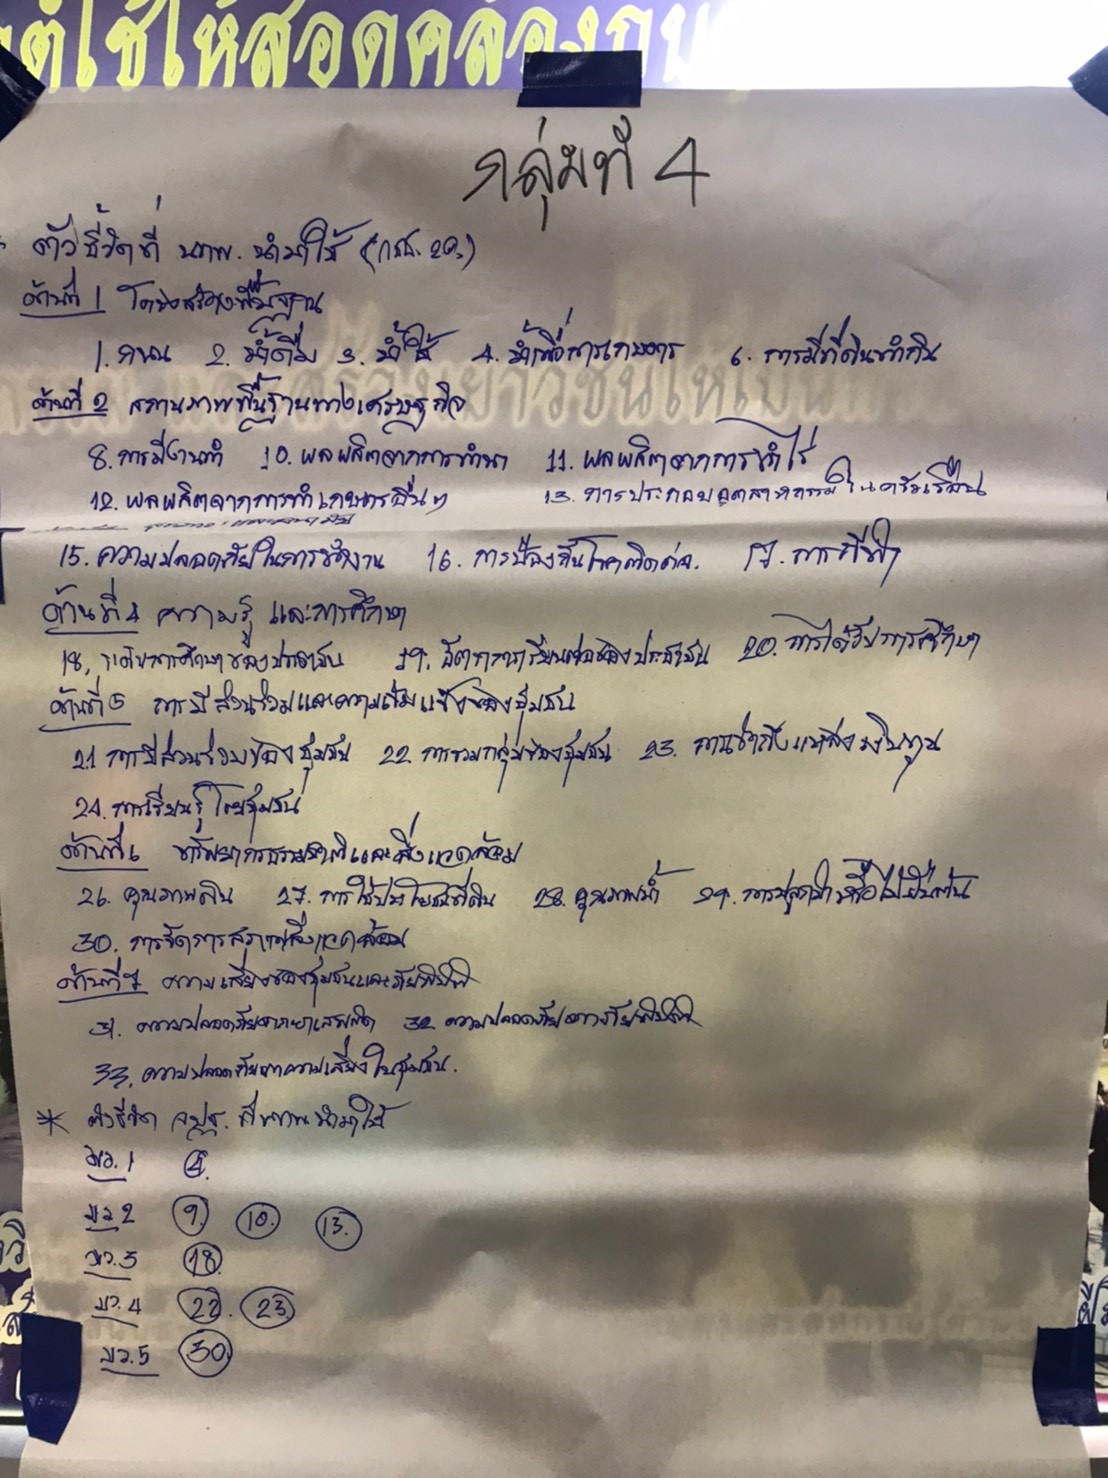 ต์ใช้ให้สอดคล้องกับ
กลุ่มที่ 4
ตัวชี้วัดที่ นทพ. นำมาใช้ (กชช. 2ค.)
ด้านที่ 1 โครงสร้างพื้นฐาน
1. ถนน 2. น้ำดื่ม 3. น้ำใช้ 4. น้ำเพื่อการเกษตร 6. การมีที่ดินทำกิน
ด้านที่ 2 สถานภาพพื้นฐานทางเศรษฐกิจ
8. การมีงานทำ 10. ผลผลิตจากการทำนา 11. ผลผลิตจากการทำไร่
12. ผลผลิตจากการทำเกษตรอื่นๆ 13. การประกอบอุตสาหกรรมในครัวเรือน
15. ความปลอดภัยในการทำงาน 16. การป้องกันโรคติดต่อ. 17. การกีฬา
ด้านที่ 4 ความรู้และการศึกษา
18. ระดับการศึกษาของประชาชน 19. อัตราการเรียนต่อของประชาชน 20. การได้รับการศึกษา
ด้านที่ 5 การมีส่วนร่วมและความเข้มแข็งของชุมชน
21 การมีส่วนร่วมของชุมชน 22. การรวมกลุ่มของชุมชน 23. การเข้าถึงแหล่งเงินทุน
24. การเรียนรู้โดยชุมชน
ด้านที่ 6 ทรัพยากรธรรมชาติและสิ่งแวดล้อม
26. คุณภาพดิน 27. การใช้ประโยชน์ที่ดิน 28. คุณภาพน้ำ 29. การปลูกป่าหรือไม้ยืนต้น
30. การจัดการสภาพสิ่งแวดล้อม
ด้านที่ 7 ความเสี่ยงของชุมชนและภัยพิบัติ
31. ความปลอดภัยจากยาเสพติด 32. ความปลอดภัยจากภัยพิบัติ
33. ความปลอดภัยจากความเสี่ยงในชุมชน.
* ตัวชี้วัด จปฐ. ที่ นทพ นำมาใช้
มว. 1 4.
มว. 2 9. 10. 13.
มว. 3 18
มว. 4 22. 23
มว. 5 30